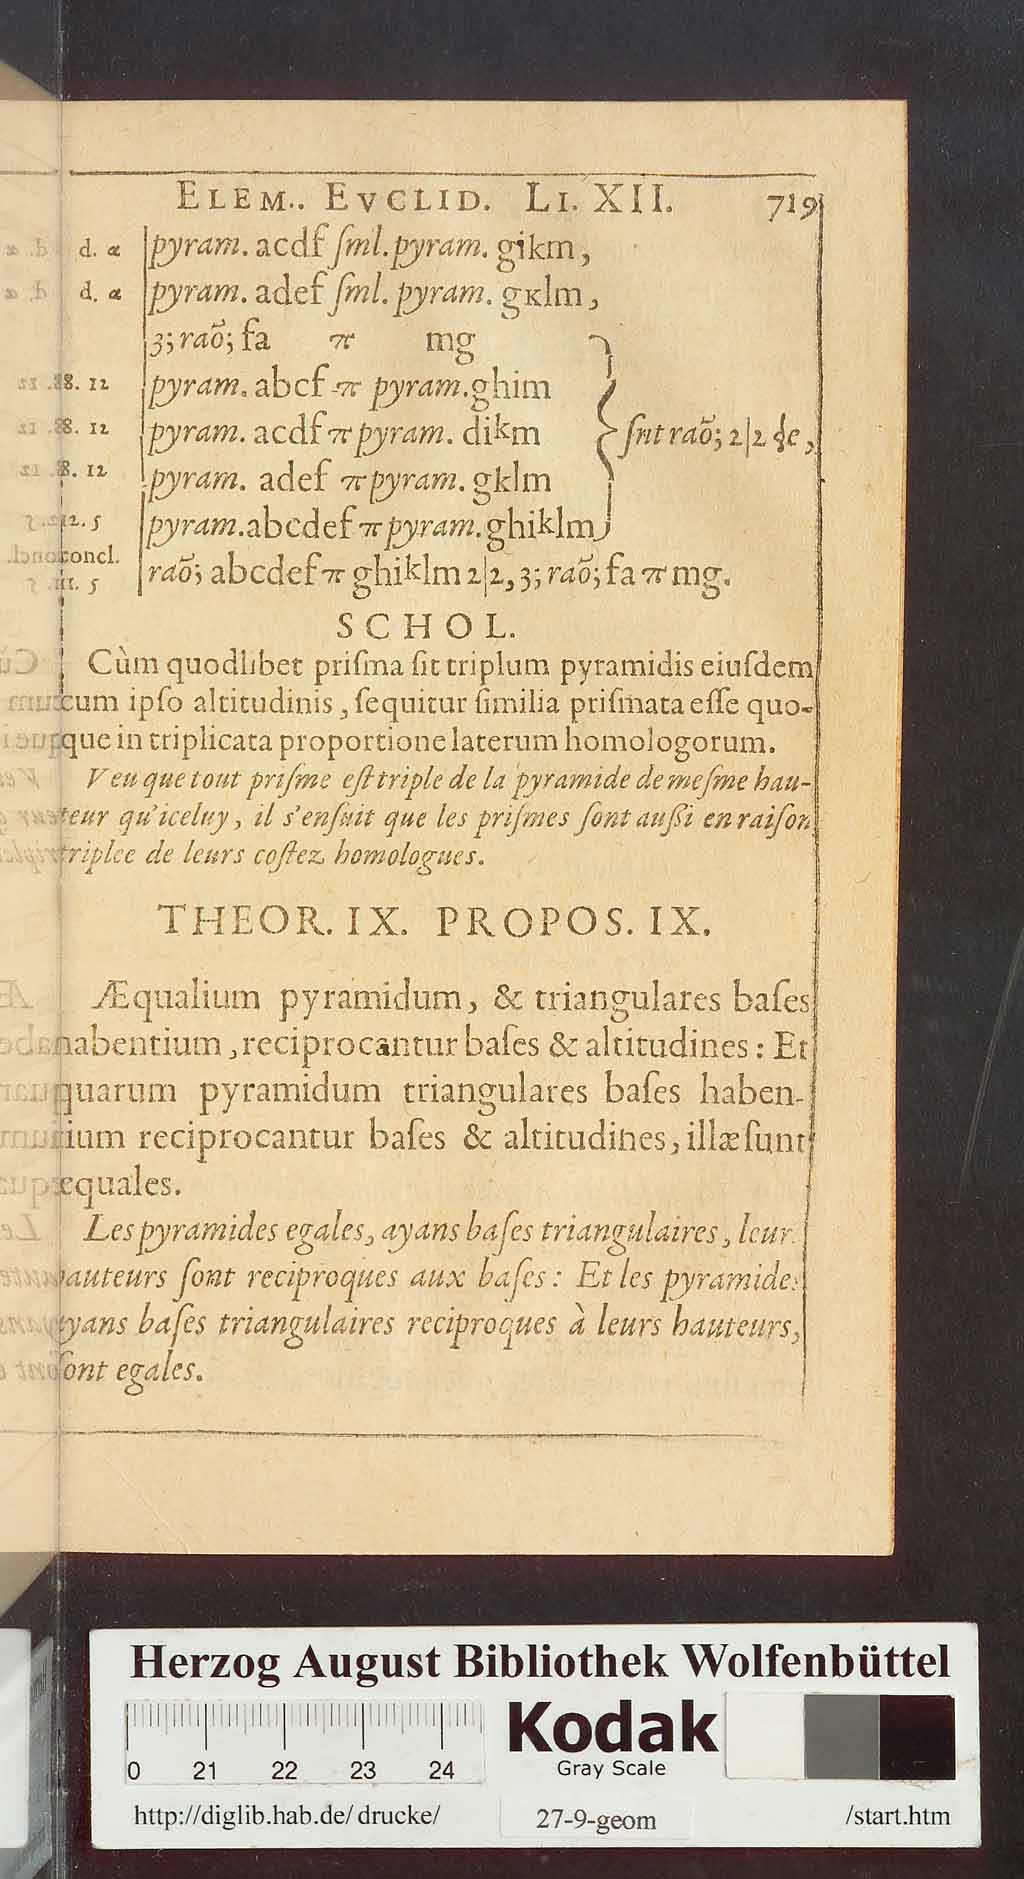 ELEM.. EVCLID. LI. XII. 719
d. α pyram. acdf ſml. pyram. gikm,
d. α pyram. adef ſml. pyram. gĸlm,
3; raõ; fa π mg
8. 12 pyram. abcf π pyram. ghim
8. 12 pyram. acdf π pyram. dikm
8. 12 pyram. adef π pyram. gklm
ſnt raõ; 2|2 de,
12. 5 pyram. abcdef π pyram. ghiklm
concl. raõ; abcdef π ghiklm 2|2, 3; raõ; fa π mg.
11. 5
SCHOL.
Cùm quodlibet priſma ſit triplum pyramidis eiuſdem
cum ipſo altitudinis, ſequitur ſimilia priſmata eſſe quo-
que in triplicata proportione laterum homologorum.
Veu que tout priſme eſt triple de la pyramide de meſme hau-
teur qu'iceluy, il s'enſuit que les priſmes ſont auſſi en raiſon
triplee de leurs coſtez homologues.
THEOR. IX. PROPOS. IX.
Æqualium pyramidum, & triangulares baſes
habentium, reciprocantur baſes & altitudines: Et
quarum pyramidum triangulares baſes haben-
tium reciprocantur baſes & altitudines, illæ ſunt
æquales.
Les pyramides egales, ayans baſes triangulaires, leur
hauteurs ſont reciproques aux baſes: Et les pyramides
ayans baſes triangulaires reciproques à leurs hauteurs,
ſont egales.
Herzog August Bibliothek Wolfenbüttel
Kodak
Gray Scale
0 21 22 23 24
http://diglib.hab.de/drucke/ 27-9-geom /start.htm